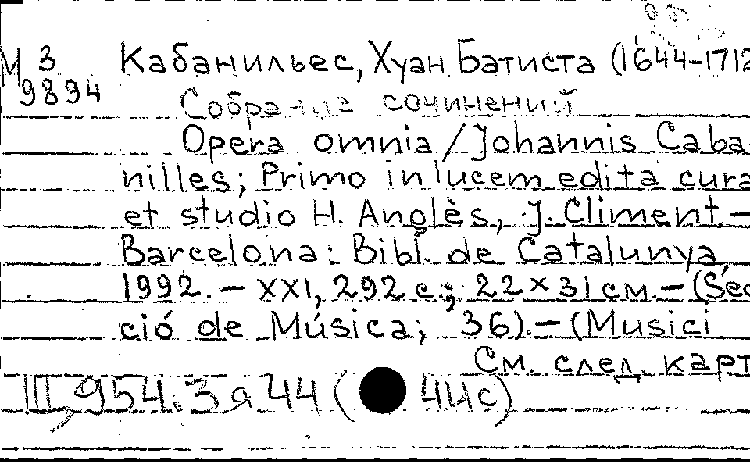 М 3 Кабанильес, Хуан Батиста (1644-1712
9894 Собрание сочинений
Opera omnia / Johannis Caba-
nilles; Primo in lucem edita cura
et studio H. Anglès, J. Climent. –
Barcelona: Bibl. de Catalunya,
1992. – XXI, 292 с.; 22×31 см. – (Sec
ció de Música; 36). – (Musici
См. след. карт
III, 954.3я44 ( 4Ис)